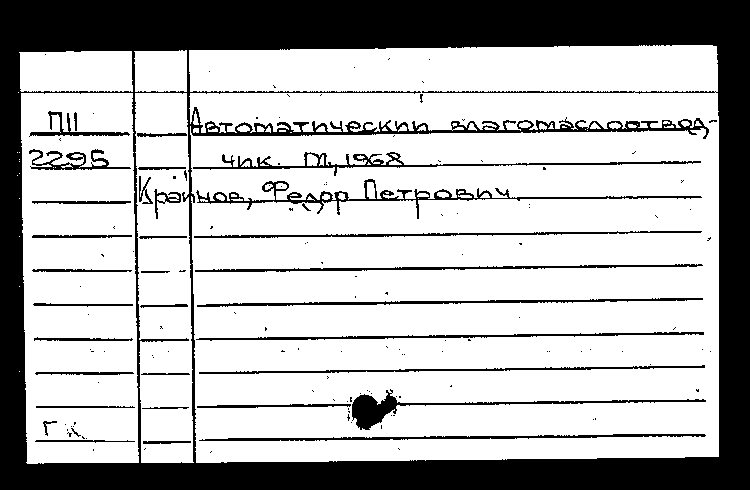 П11 Автоматический влагомаслоотвод-
2295 чик. М., 1968
Крайнов, Федор Петрович.
Г К